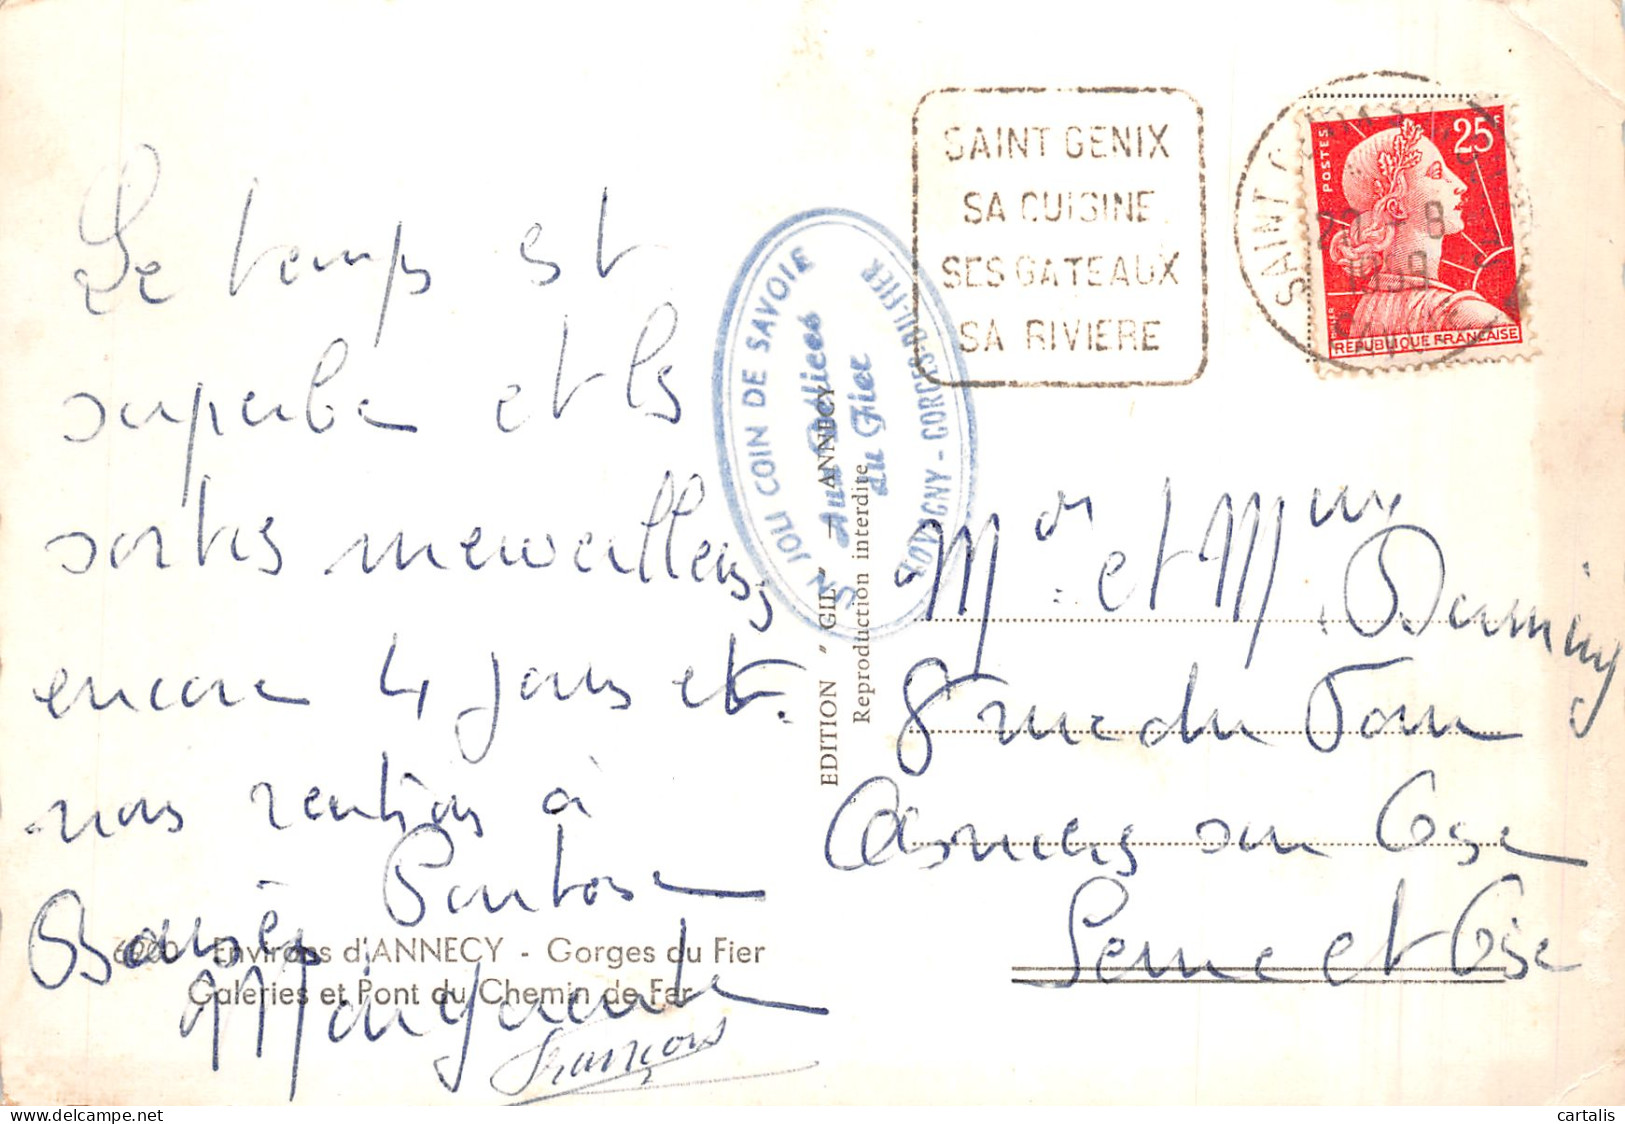 Le temps est
superbe et les
sorties merveilleuses,
encore 4 jours et
nous rentrons à
Pontoise
Baisers
Marguerite
François
6200 - Environs d'ANNECY - Gorges du Fier
Galeries et Pont du Chemin de Fer
EDITION "GIL" - ANNECY
Reproduction interdite
UN JOLI COIN DE SAVOIE
Aux Délices
du Fier
LOVAGNY - GORGES-DU-FIER
SAINT GENIX
SA CUISINE
SES GATEAUX
SA RIVIERE
SAINT GENIX
22 - 8
1959
POSTES
25F
REPUBLIQUE FRANÇAISE
Mon et Mme
8 rue du
Asnières sur Oise
Seine et Oise
cartalis